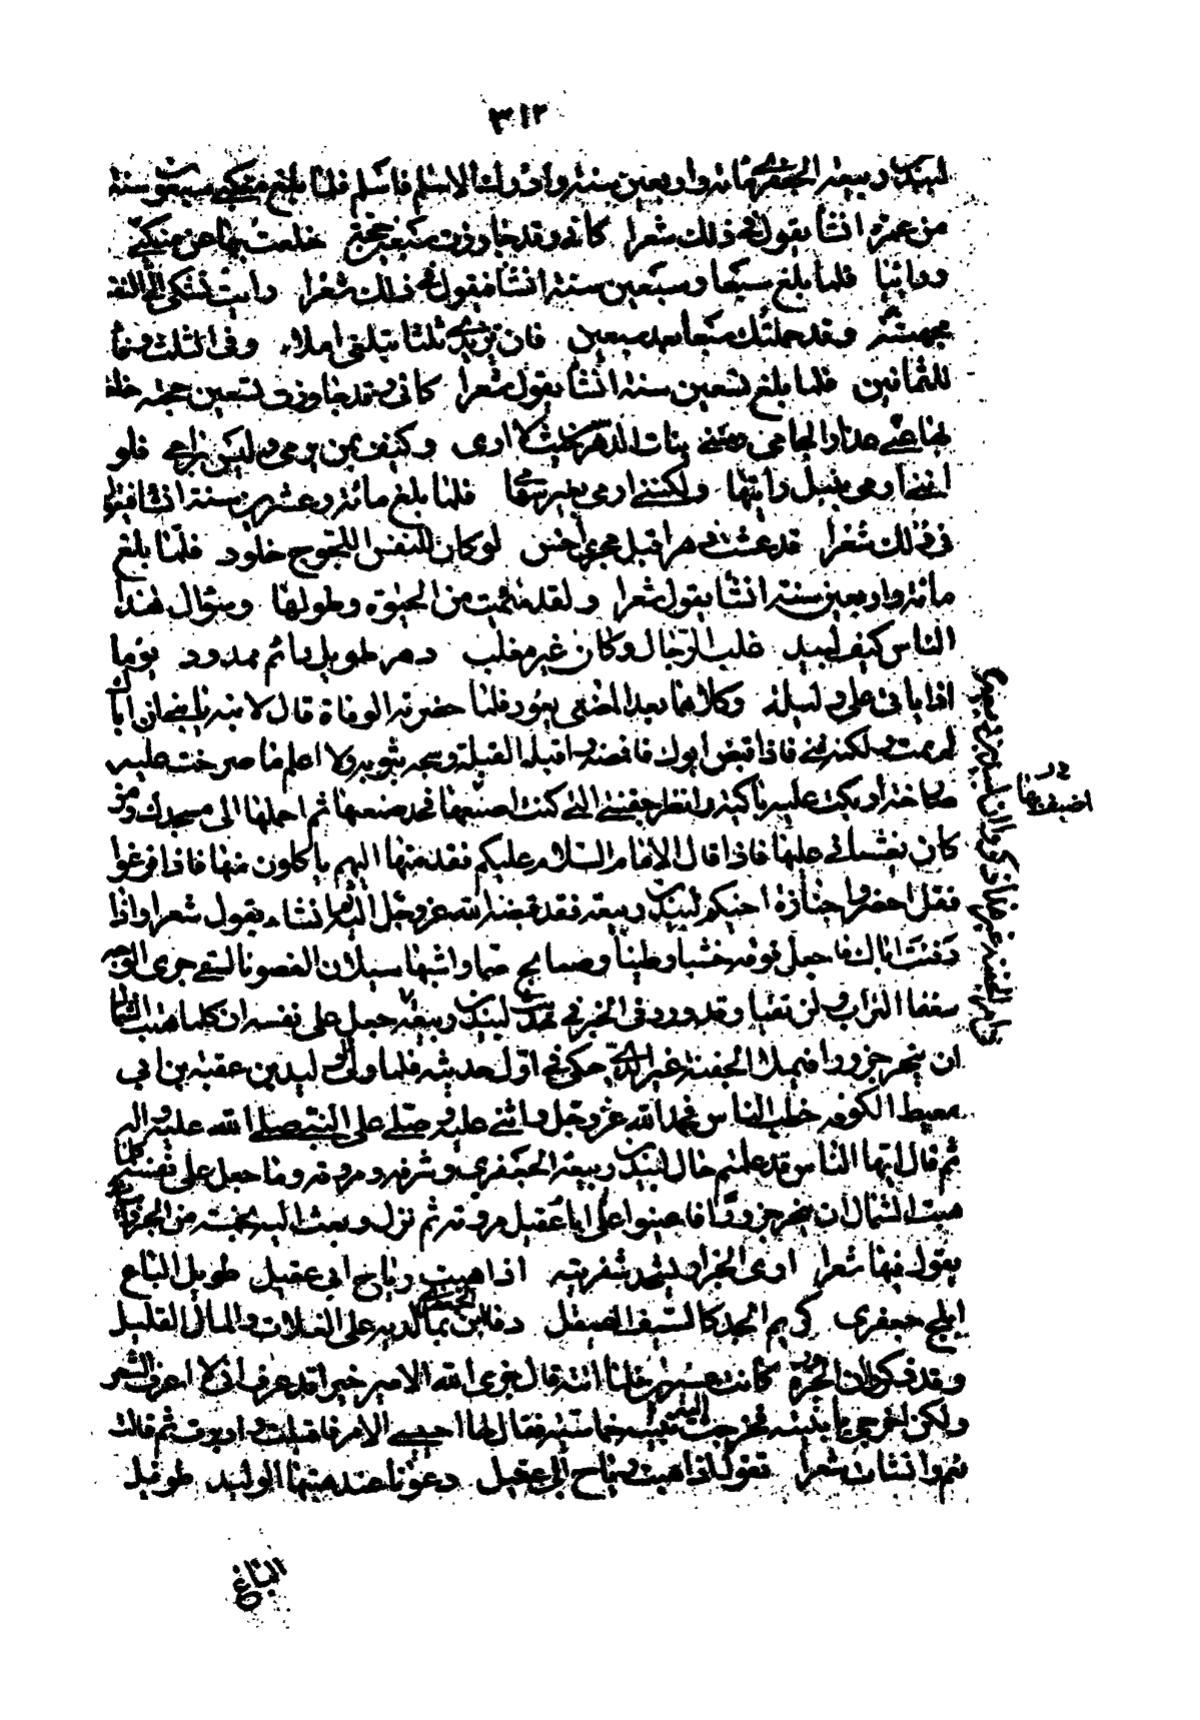 ٣١٢
لبيد بن ربيعة الجعفري مائة واربعين سنة وادرك الاسلام فاسلم فلما بلغ سبعون سنة
من عمره انشا يقول في ذلك شعرا كاني وقد جاوزت سبعين حجة خلعت بها عن منكبي
ردائيا فلما بلغ سبعا وسبعين سنة انشا يقول في ذلك شعرا باتت تشتكي الي النفس
مجهشة وقد حملتك سبعا بعد سبعين فان تزيدي ثلثا تبلغي املا وفي الثلث وفاء
للثمانين فلما بلغ تسعين سنة انشا يقول شعرا كاني وقد جاوزت تسعين حجة خلعت
بها عني عذار لجامي رمتني بنات الدهر من حيث لا ارى وكيف بمن يرمى وليس برامي فلو
انني ارمى بنبل رايتها ولكنني ارمى بغير سهام فلما بلغ مائة وعشرين سنة انشا يقول
في ذلك شعرا قد عشت دهرا قبل مجرى داحس لو كان للنفس اللجوج خلود فلما بلغ
مائة واربعين سنة انشا يقول شعرا ولقد سئمت من الحيوة وطولها وسؤال هذا
الناس كيف لبيد غلب الرجال وكان غير مغلب دهر طويل دائم ممدود يوما
اذا ياتي علي وليلة وكلاهما بعد المضي يعود فلما حضرته الوفاة قال لابنه يا بني ان اباك
لم يمت ولكنه فني فاذا قبض ابوك فاغمضه واقبله القبلة وسجه بثوبه ولا اعلمن ما صرخت عليه
صارخة او بكت عليه باكية وانظر جفنتي التي كنت اصنعها فاجد صنعها ثم احملها الى مسجدك ومن
كان يغشاني عليها فاذا قال الامام السلام عليكم فقدمها اليهم ياكلون منها فاذا فرغوا
فقل احضروا جنازة اخيكم لبيد بن ربيعة فقد قبضه الله عز وجل ثم انشاء يقول شعرا واذا
دفنت اباك فاجعل فوقه خشبا وطينا وصفائح صما رواسيها تسدد الغصونا ليقين حر الوجه
سفساف التراب ولن يقينا وقد ورد في الخبر في حديث لبيد بن ربيعة جعل على نفسه ان كلما هبت الشمال
ان ينحر جزورا فيملا الجفنة غير الذي حكي في اول حديثه فلما ولي الوليد بن عقبة بن ابي
معيط الكوفة خطب الناس فحمد الله عز وجل واثنى عليه وصلى على النبي صلى الله عليه واله
ثم قال ايها الناس قد علمتم حال لبيد بن ربيعة الجعفري وشرفه ومروته وما جعل على نفسه كلما
هبت الشمال ان ينحر جزورا فاعينوا على ابا عقيل مروته ثم نزل وبعث اليه بخمسة من الجزر وابيات
يقول فيها شعرا ارى الجزار يشحذ شفرتيه اذا هبت رياح ابي عقيل طويل الباع
ابلج جعفري كريم الجد كالسيف الصقيل وفى ابن الجعفري بما لديه على العلات والمال القليل
وقد ذكروا ان الجزر كانت عشرين فلما اتته قال جزى الله الامير خيرا قد عرف اني لا اعرف الشعر
ولكن اخرجي يا بنية فخرجت اليه بنية خماسية فقال لها اجيبي الامير فاقبلت وادبرت ثم قالت
نعم وانشات شعرا تقول اذا هبت رياح ابي عقيل دعونا عند هبتها الوليد طويل
الباع